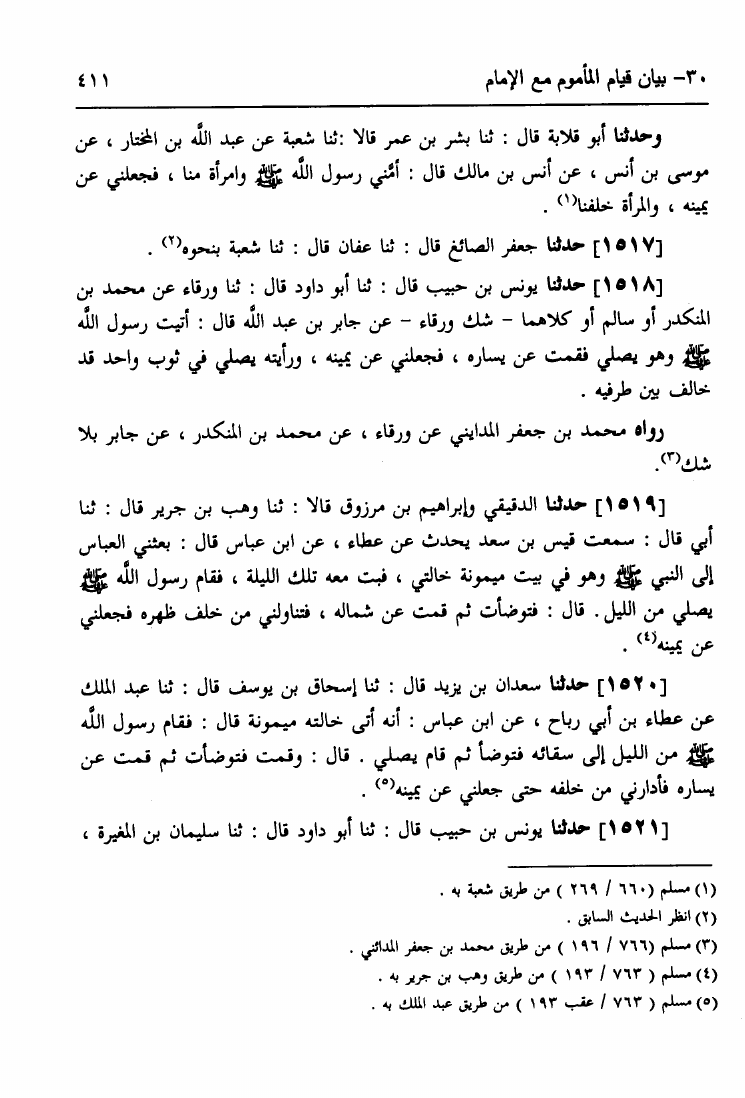 ٣٠- بيان قيام المأموم مع الإمام
٤١١
وحدثنا أبو قلابة قال : ثنا بشر بن عمر قالا :ثنا شعبة عن عبد اللَّه بن المختار ، عن
موسى بن أنس ، عن أنس بن مالك قال : أمَّني رسول اللَّه ﷺ وامرأة منا ، فجعلني عن
يمينه ، والمرأة خلفنا(١) .
[١٥١٧] حدثنا جعفر الصائغ قال : ثنا عفان قال : ثنا شعبة بنحوه(٢) .
[١٥١٨] حدثنا يونس بن حبيب قال : ثنا أبو داود قال : ثنا ورقاء عن محمد بن
المنكدر أو سالم أو كلاهما – شك ورقاء – عن جابر بن عبد اللَّه قال : أتيت رسول اللَّه
ﷺ وهو يصلي فقمت عن يساره ، فجعلني عن يمينه ، ورأيته يصلي في ثوب واحد قد
خالف بين طرفيه .
رواه محمد بن جعفر المدايني عن ورقاء ، عن محمد بن المنكدر ، عن جابر بلا
شك(٣).
[١٥١٩] حدثنا الدقيقي وإبراهيم بن مرزوق قالا : ثنا وهب بن جرير قال : ثنا
أبي قال : سمعت قيس بن سعد يحدث عن عطاء ، عن ابن عباس قال : بعثني العباس
إلى النبي ﷺ وهو في بيت ميمونة خالتي ، فبت معه تلك الليلة ، فقام رسول اللَّه ﷺ
يصلي من الليل. قال : فتوضأت ثم قمت عن شماله ، فتناولني من خلف ظهره فجعلني
عن يمينه(٤) .
[١٥٢٠] حدثنا سعدان بن يزيد قال : ثنا إسحاق بن يوسف قال : ثنا عبد الملك
عن عطاء بن أبي رباح ، عن ابن عباس : أنه أتى خالته ميمونة قال : فقام رسول اللَّه
ﷺ من الليل إلى سقائه فتوضأ ثم قام يصلي . قال : وقمت فتوضأت ثم قمت عن
يساره فأدارني من خلفه حتى جعلني عن يمينه(٥) .
[١٥٢١] حدثنا يونس بن حبيب قال : ثنا أبو داود قال : ثنا سليمان بن المغيرة ،
(١) مسلم (٦٦٠ / ٢٦٩ ) من طريق شعبة به .
(٢) انظر الحديث السابق .
(٣) مسلم (٧٦٦ / ١٩٦ ) من طريق محمد بن جعفر المدائني .
(٤) مسلم ( ٧٦٣ / ١٩٣ ) من طريق وهب بن جرير به .
(٥) مسلم ( ٧٦٣ / عقب ١٩٣ ) من طريق عبد الملك به .